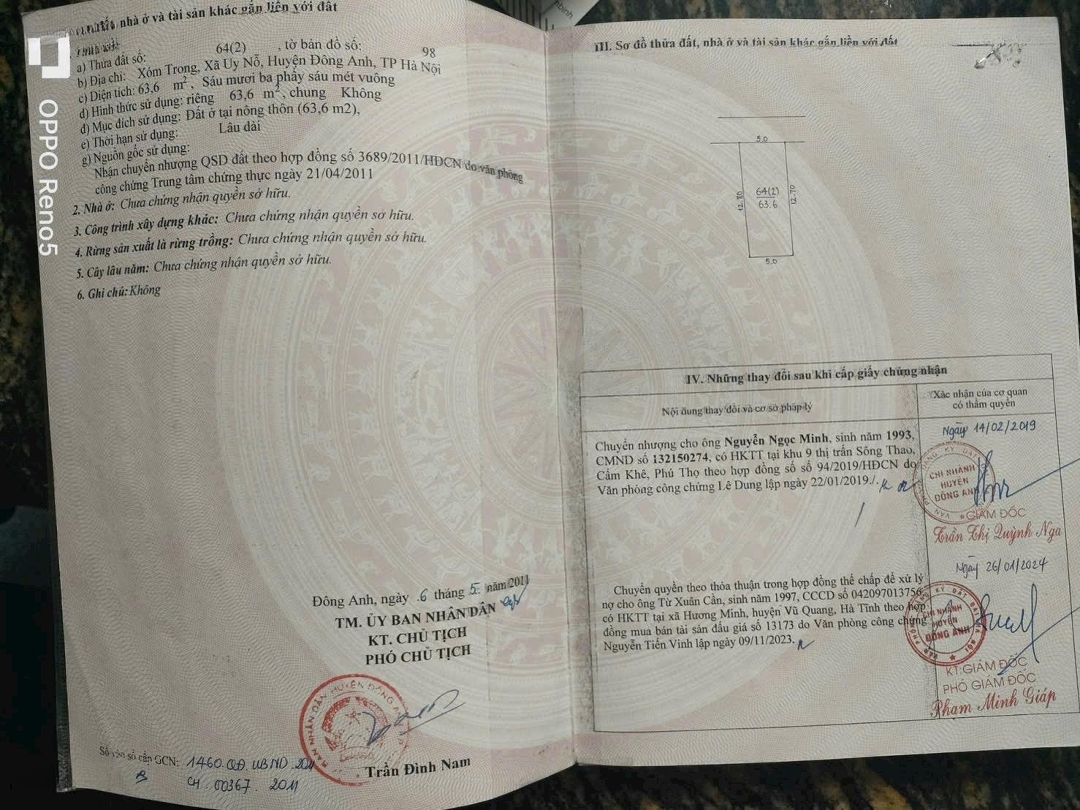 nhà ở và tài sản khác gắn liền với đất
a) Thửa đất số: 64(2) , tờ bản đồ số: 98
b) Địa chỉ: Xóm Trong, Xã Uy Nỗ, Huyện Đông Anh, TP Hà Nội
c) Diện tích: 63,6 m², Sáu mươi ba phẩy sáu mét vuông
d) Hình thức sử dụng: riêng 63,6 m², chung Không
đ) Mục đích sử dụng: Đất ở tại nông thôn (63,6 m2),
e) Thời hạn sử dụng: Lâu dài
g) Nguồn gốc sử dụng:
Nhận chuyển nhượng QSD đất theo hợp đồng số 3689/2011/HĐCN do văn phòng
công chứng Trung tâm chứng thực ngày 21/04/2011
2. Nhà ở: Chưa chứng nhận quyền sở hữu.
3. Công trình xây dựng khác: Chưa chứng nhận quyền sở hữu.
4. Rừng sản xuất là rừng trồng: Chưa chứng nhận quyền sở hữu.
5. Cây lâu năm: Chưa chứng nhận quyền sở hữu.
6. Ghi chú: Không
Đông Anh, ngày 6 tháng 5 năm 2011
TM. ỦY BAN NHÂN DÂN
KT. CHỦ TỊCH
PHÓ CHỦ TỊCH
BAN NHÂN DÂN HUYỆN ĐÔNG ANH
Trần Đình Nam
Số vào sổ cấp GCN: 1460.QĐ.UBND.2011
CH 00367 2011
III. Sơ đồ thửa đất, nhà ở và tài sản khác gắn liền với đất
5.0
12.70
64(2)
63.6
12.70
5.0
IV. Những thay đổi sau khi cấp giấy chứng nhận
Nội dung thay đổi và cơ sở pháp lý
Xác nhận của cơ quan
có thẩm quyền
Chuyển nhượng cho ông Nguyễn Ngọc Minh, sinh năm 1993,
CMND số 132150274, có HKTT tại khu 9 thị trấn Sông Thao,
Cẩm Khê, Phú Thọ theo hợp đồng số số 94/2019/HĐCN do
Văn phòng công chứng Lê Dung lập ngày 22/01/2019./.
Ngày 14/02/2019
CHI NHÁNH
HUYỆN
ĐÔNG ANH
GIÁM ĐỐC
Trần Thị Quỳnh Nga
Chuyển quyền theo thỏa thuận trong hợp đồng thế chấp để xử lý
nợ cho ông Từ Xuân Cần, sinh năm 1997, CCCD số 042097013756,
có HKTT tại xã Hương Minh, huyện Vũ Quang, Hà Tĩnh theo hợp
đồng mua bán tài sản đấu giá số 13173 do Văn phòng công chứng
Nguyễn Tiến Vinh lập ngày 09/11/2023.
Ngày 26/01/2024
CHI NHÁNH
HUYỆN
ĐÔNG ANH
KT.GIÁM ĐỐC
PHÓ GIÁM ĐỐC
Phạm Minh Giáp
OPPO Reno5